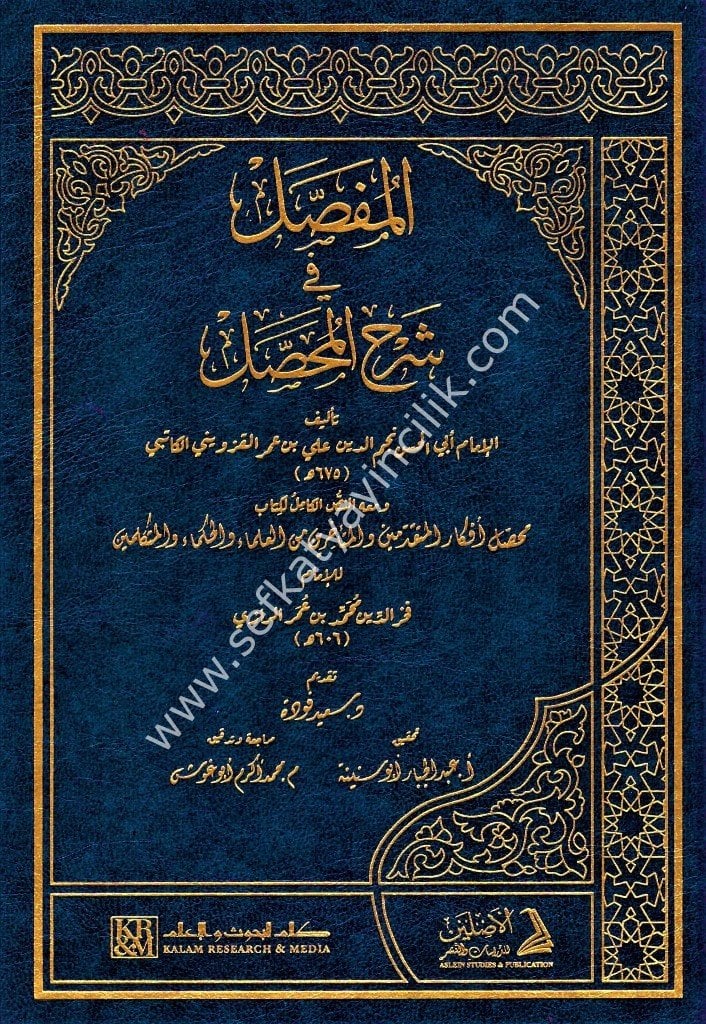 المُفَصَّل
في
شَرْح المُحَصَّل
تأليف
الإمام أبي الحسن نجم الدين علي بن عمر القزويني الكاتبي
(٦٧٥هـ)
ومعه النصُّ الكاملُ لكتاب
محصل أفكار المتقدمين والمتأخرين من العلماء والحكماء والمتكلمين
للإمام
فخر الدين محمد بن عمر الرازي
(٦٠٦هـ)
تقديم
د. سعيد فودة
تحقيق
أ. عبد الجبار أبو سنينة
مراجعة وتدقيق
م. محمد أكرم أبو غوش
كلام للبحوث والإعلام
KALAM RESEARCH & MEDIA
KR&M
الأصلين
للدراسات والنشر
ASLEIN STUDIES & PUBLICATION
www.sefkatyayincilik.com